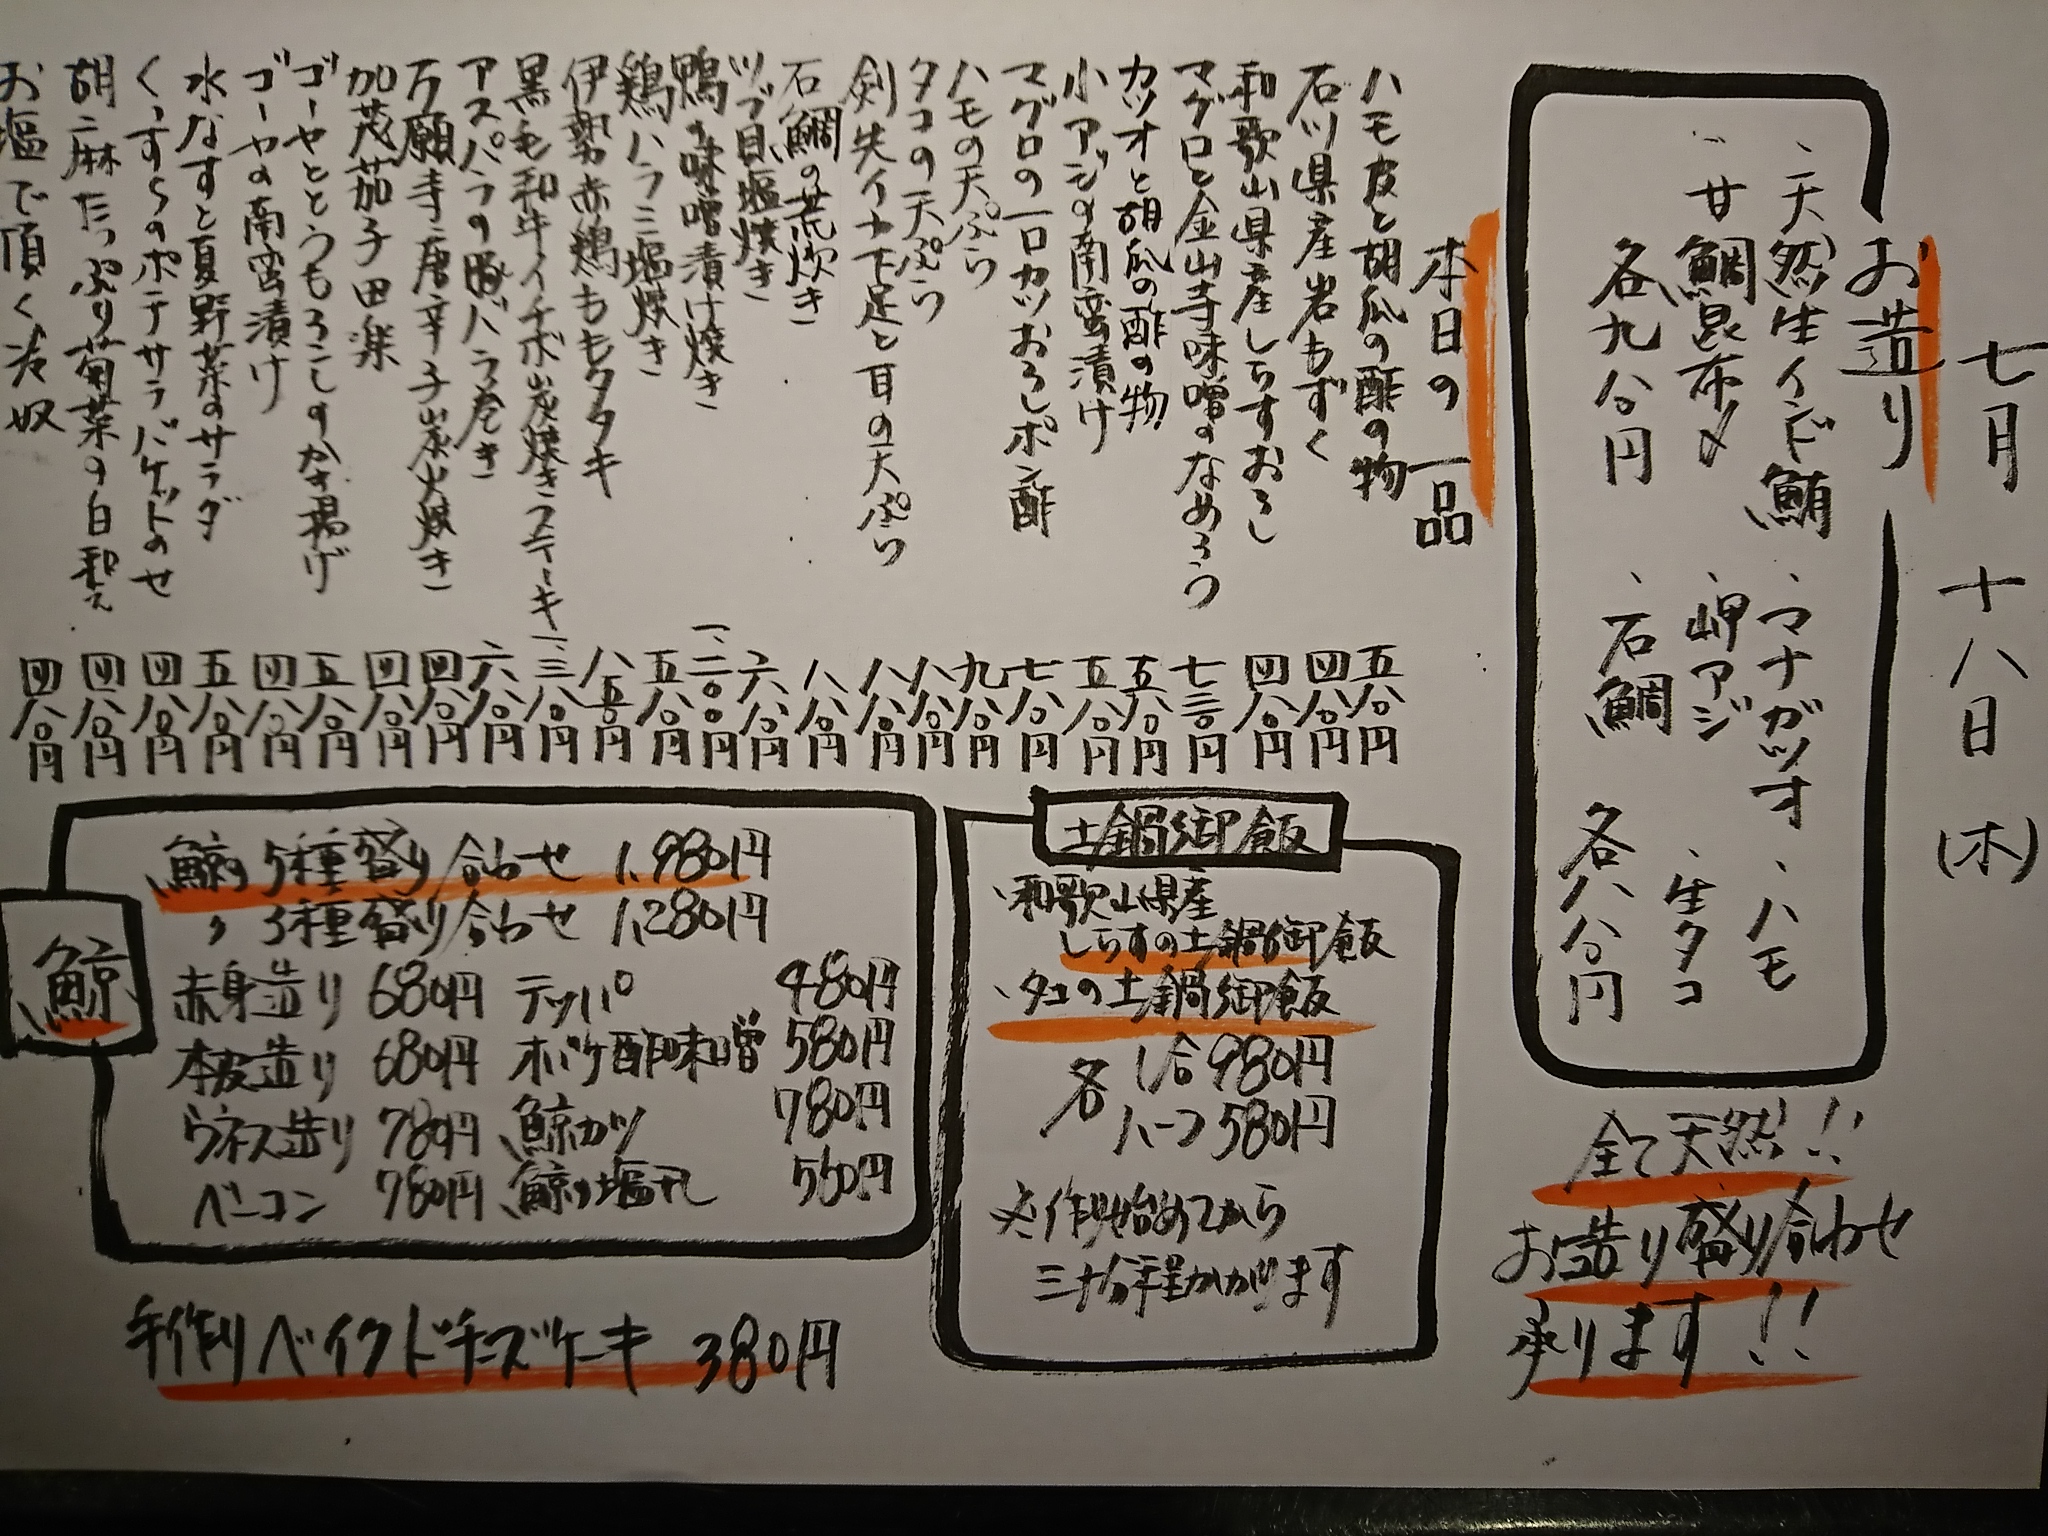 七月十八日(木)
お造り
、天然生インド鮪 、マナガツオ 、ハモ
、甘鯛昆布〆 、岬アジ 、生タコ
各九八〇円 、石鯛 各八八〇円
全て天然!!
お造り盛り合わせ
承ります!!
本日の一品
ハモ皮と胡瓜の酢の物 五八〇円
石川県産岩もずく 四八〇円
和歌山県産しらすおろし 四八〇円
マグロと金山寺味噌のなめろう 七三〇円
カツオと胡瓜の酢の物 五八〇円
小アジの南蛮漬け 五八〇円
マグロの一口カツおろしポン酢 七八〇円
ハモの天ぷら 九八〇円
タコの天ぷら 八八〇円
剣先イカ下足と耳の天ぷら 八八〇円
石鯛の荒炊き 八八〇円
ツブ貝塩焼き 六八〇円
鴨の味噌漬け焼き 一、二〇〇円
鶏ハラミ塩焼き 五八〇円
伊勢赤鶏ももタタキ 八五〇円
黒毛和牛イチボ炭焼きステーキ 一、三八〇円
アスパラの豚バラ巻き 六八〇円
万願寺唐辛子炭火焼き 四八〇円
加茂茄子田楽 四八〇円
ゴーヤととうもろこしのかき揚げ 五八〇円
ゴーヤの南蛮漬け 四八〇円
水なすと夏野菜のサラダ 五八〇円
くんすらのポテサラバケットのせ 四八〇円
胡麻たっぷり菊菜の白和え 四八〇円
お塩で頂く冷奴 四八〇円
土鍋御飯
、和歌山県産
しらすの土鍋御飯
、タコの土鍋御飯
各 1合980円
ハーフ580円
※作り始めてから
三十分程かかります
鯨
鯨の5種盛り合わせ 1,980円
〃 3種盛り合わせ 1,280円
赤身造り 680円 テッパ 480円
本皮造り 680円 オバケ酢味噌 580円
ウネス造り 780円 鯨カツ 780円
ベーコン 780円 鯨の塩丸 550円
手作りベイクドチーズケーキ 380円